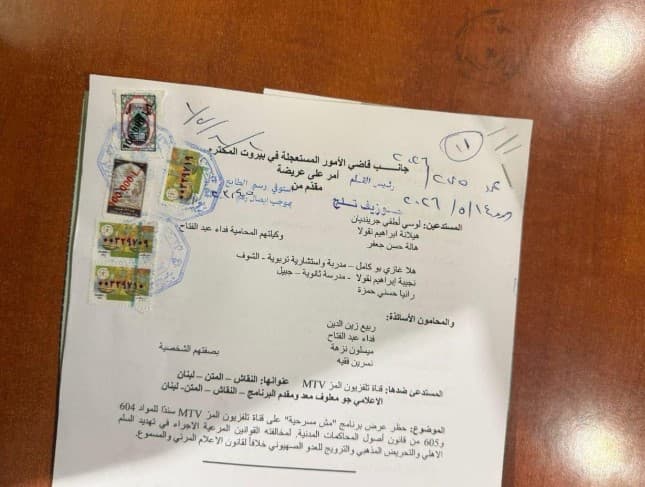 جانب قاضي الأمور المستعجلة في بيروت المحترم
أمر على عريضة
مقدّم من
رئيس القلم
جوزيف تلج
المستدعين: لوسي لطفي جرينديان
هيلانة ابراهيم نقولا وكيلتهم المحامية فداء عبد الفتاح
هالة حسن جعفر
هلا غازي بو كامل – مدربة واستشارية تربوية – الشوف
نجيبة إبراهيم نقولا - مدرسة ثانوية – جبيل
رانيا حسني حمزة
والمحامون الأساتذة:
ربيع زين الدين
فداء عبد الفتاح
ميسلون نزهة
نسرين فقيه بصفتهم الشخصية
المستدعى ضدها: قناة تلفزيون المر MTV عنوانها: النقاش – المتن – لبنان
الاعلامي جو معلوف معد ومقدم البرنامج – النقاش – المتن- لبنان
الموضوع: حظر عرض برنامج "مش مسرحية" على قناة تلفزيون المر MTV سندًا للمواد 604
و605 من قانون أصول المحاكمات المدنية، لمخالفته القوانين المرعية الاجراء في تهديد السلم
الاهلي والتحريض المذهبي والترويج للعدو الصهيوني خلافاً لقانون الاعلام المرئي والمسموع.
100,000 L
٠٠٣٢٩٧١٩
٠٠٣٢٩٧٠٩
٠٠٣٢٩٧١٠